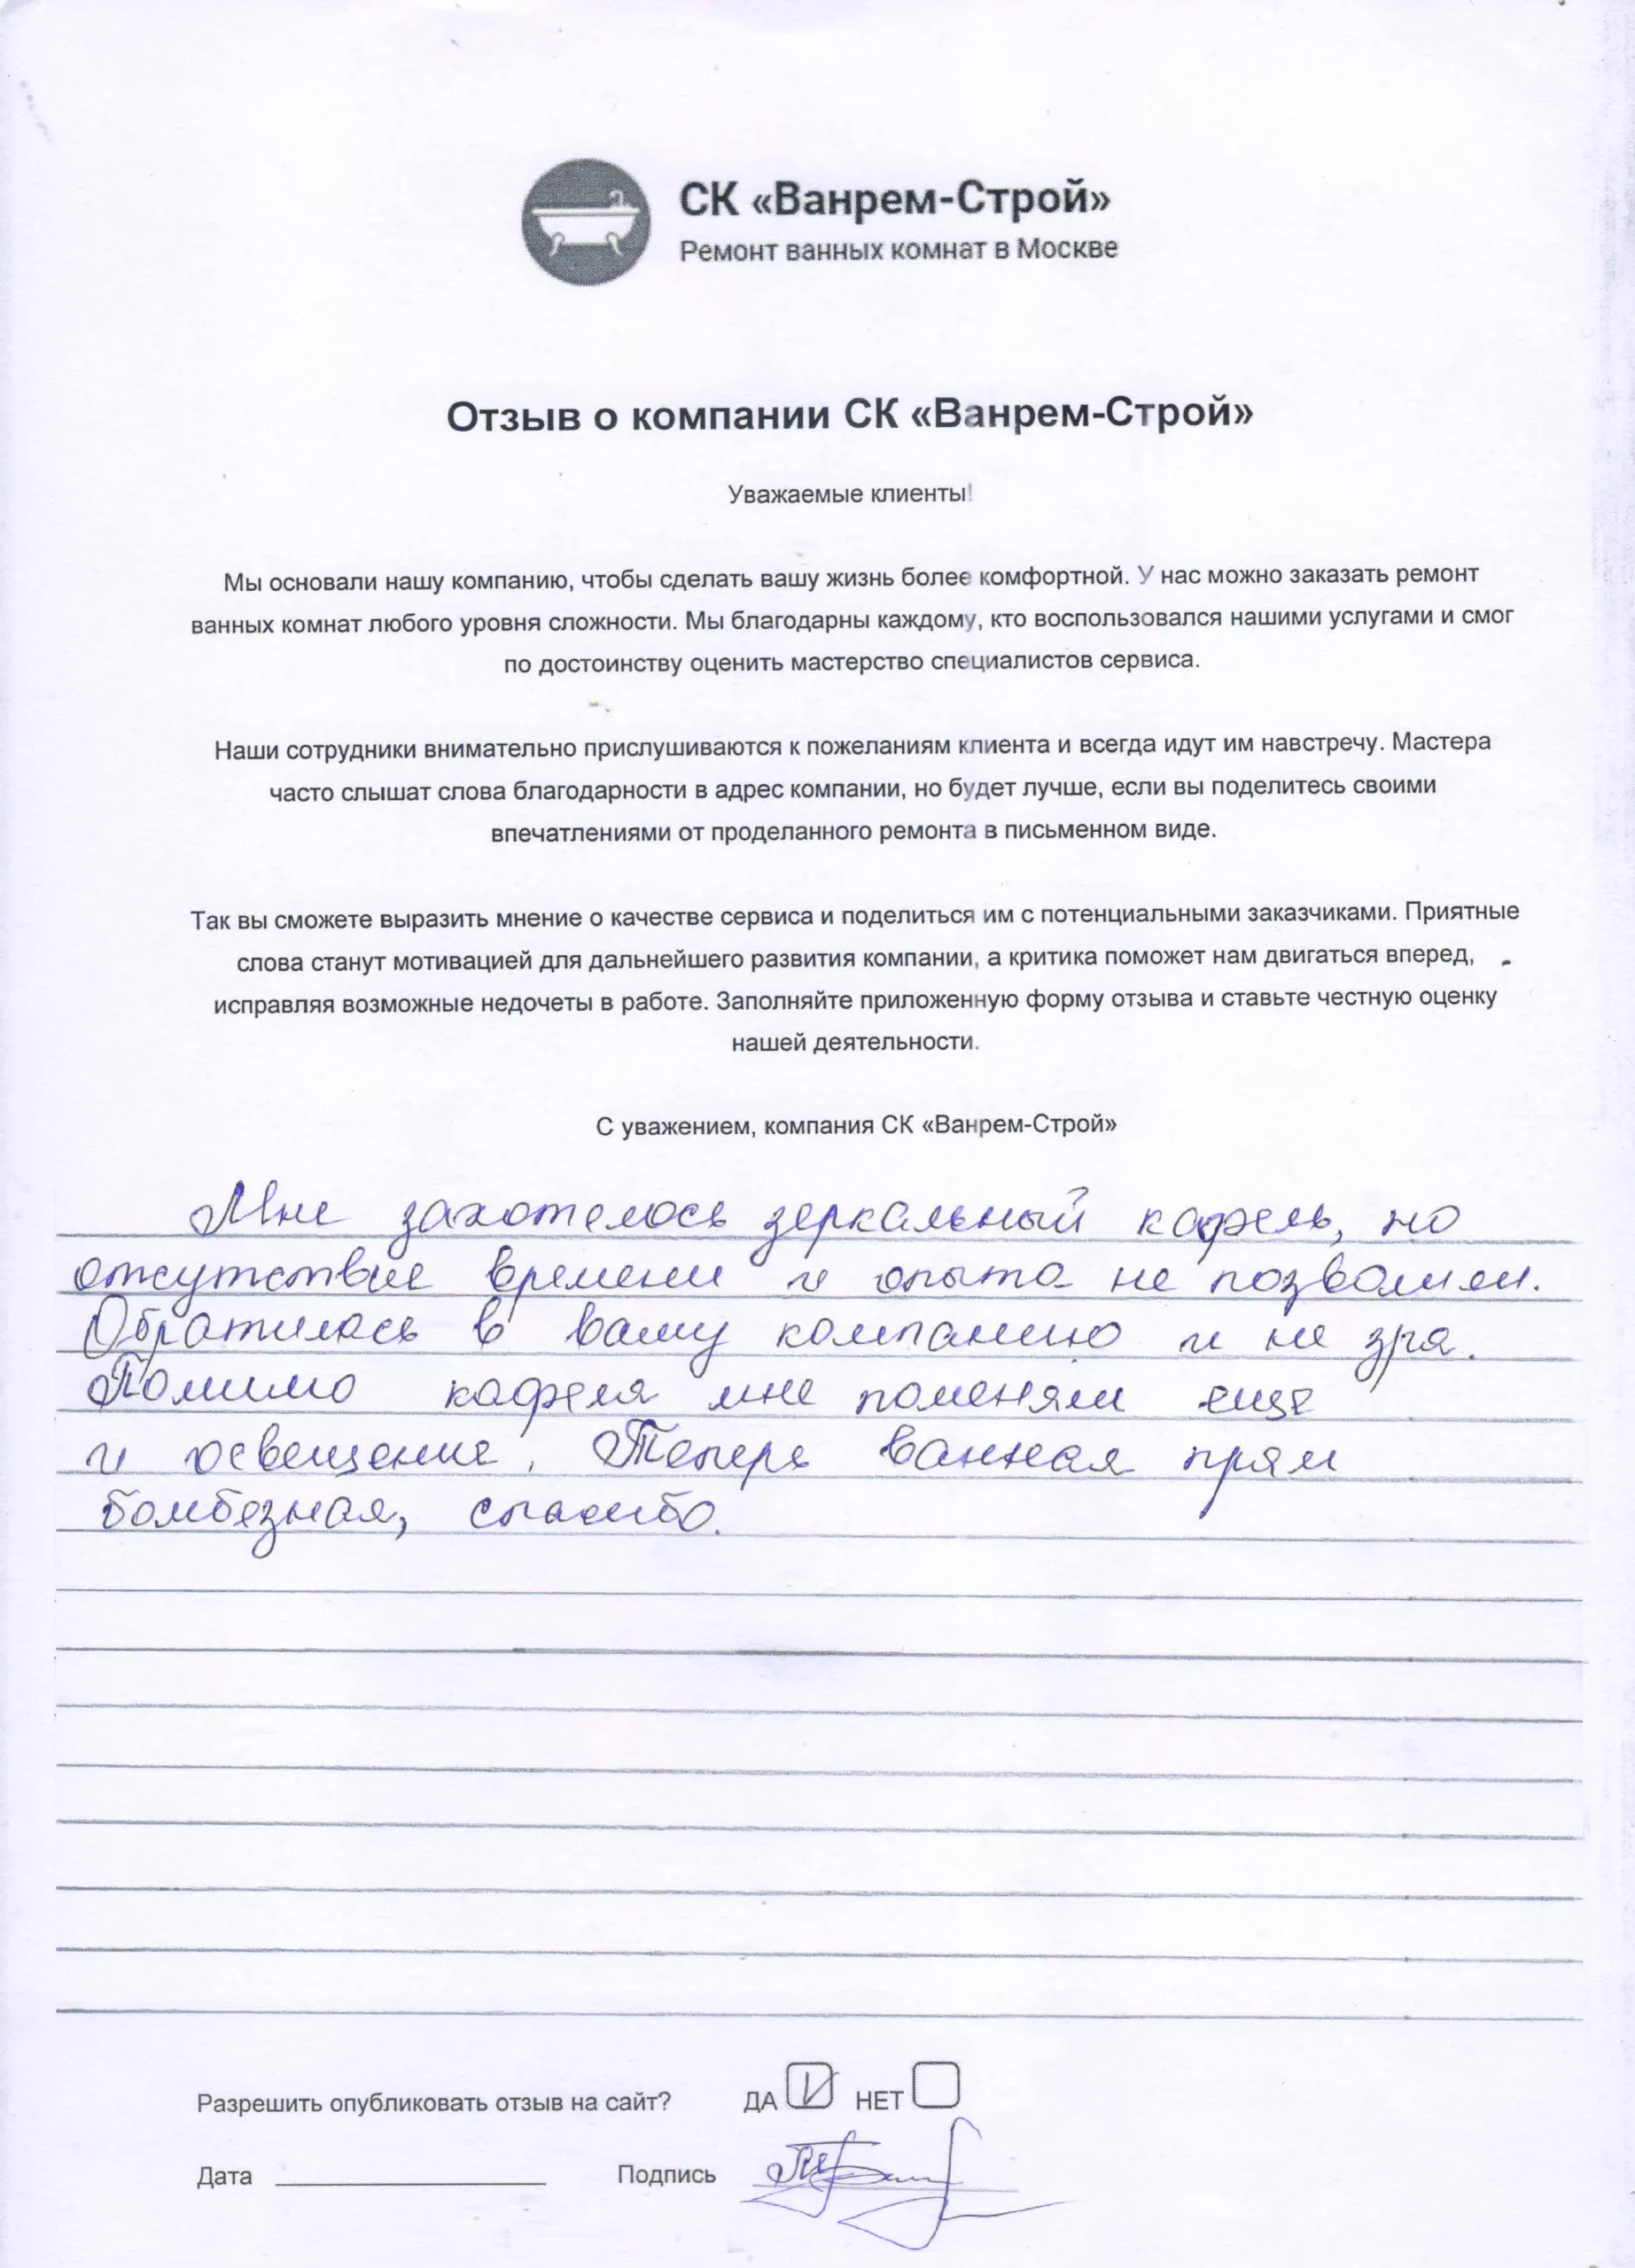 СК «Ванрем-Строй»
Ремонт ванных комнат в Москве
Отзыв о компании СК «Ванрем-Строй»
Уважаемые клиенты!
Мы основали нашу компанию, чтобы сделать вашу жизнь более комфортной. У нас можно заказать ремонт
ванных комнат любого уровня сложности. Мы благодарны каждому, кто воспользовался нашими услугами и смог
по достоинству оценить мастерство специалистов сервиса.
Наши сотрудники внимательно прислушиваются к пожеланиям клиента и всегда идут им навстречу. Мастера
часто слышат слова благодарности в адрес компании, но будет лучше, если вы поделитесь своими
впечатлениями от проделанного ремонта в письменном виде.
Так вы сможете выразить мнение о качестве сервиса и поделиться им с потенциальными заказчиками. Приятные
слова станут мотивацией для дальнейшего развития компании, а критика поможет нам двигаться вперед,
исправляя возможные недочеты в работе. Заполняйте приложенную форму отзыва и ставьте честную оценку
нашей деятельности.
С уважением, компания СК «Ванрем-Строй»
Мне захотелось зеркальный кафель, но
отсутствие времени и опыта не позволили.
Обратилась в вашу компанию и не зря.
Помимо кафеля мне поменяли еще
и освещение. Теперь ванная прям
бомбезная, спасибо.
Разрешить опубликовать отзыв на сайт? ДА НЕТ
Дата Подпись